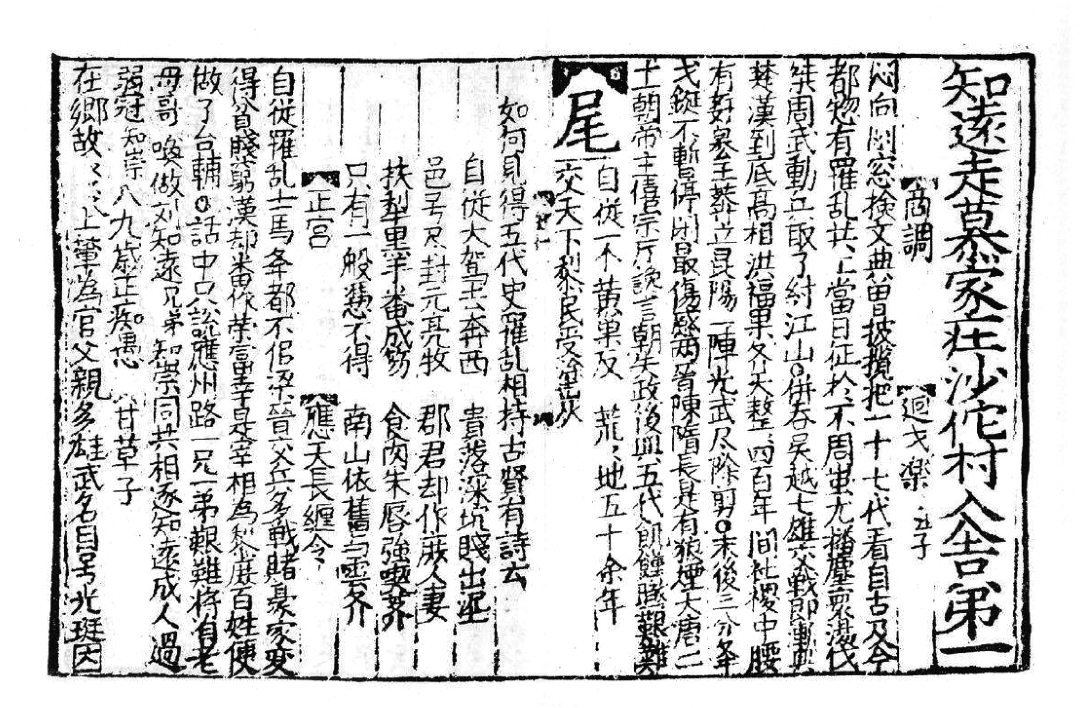 知遠走慕家庄沙佗村入舍第一
商調 迴戈樂
悶向閑窓檢文典曾披攬把一十七代看自古及今
都惣有罹乱共工當日征於不周蚩尤播塵寰湯伐
桀周武動兵取了紂江山○併吞吳越七雄交戰即漸興
楚漢到底高相洪福果齐天整整四百年間社稷中腰
有奸臬王莽立昆陽一陣光武尽除剪○末後三分举
戈鋋不暫停閑最傷感兩晉陳隋長是有狼煙大唐二
十一朝帝主僖宗听讒言朝失政後興五代飢饉喂艱難
尾 自從一个黃巢反 荒荒地五十余年
交天下黎民受塗炭
如何見得五代史罹乱相持古賢有詩云
自從大駕去奔西 貴落深坑賤出泥
邑号尽封元亮牧 郡君却作庶人妻
扶犁黑手番成笏 食肉朱唇強喫虀
只有一般憑不得 南山依舊与雲齐
正宮 應天長纏令
自從罹乱士馬举都不侣梁晉交兵多戰賭豪家変
得貧賤窮漢却番作榮富幸是宰相為黎庶百姓便
做了台輔○話中只說應州路一兄一弟艱難將自老
母哥哥喚做刘知遠兄弟知崇同共相逐知遠成人過
弱冠知崇八九歲正痴愚 甘草子
在鄉故在鄉故上輩為官父親多雄武名目号光珽因